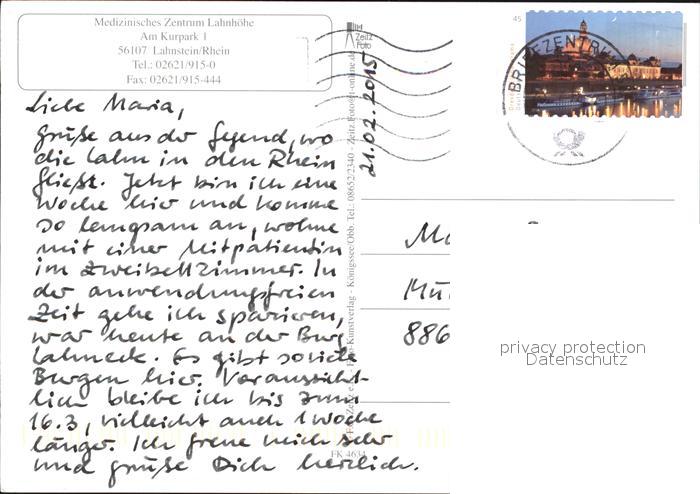 Medizinisches Zentrum Lahnhöhe
Am Kurpark 1
56107 Lahnstein/Rhein
Tel.: 02621/915-0
Fax: 02621/915-444
Zeitz
Foto
45
BRIEFZENTRUM
21.02.2015
Liebe Maria,
Grüße aus der Gegend, wo
die Lahn in den Rhein
fließt. Jetzt bin ich eine
Woche hier und komme
so langsam an, wohne
mit einer Mitpatientin
im Zweibettzimmer. In
der anwendungsfreien
Zeit gehe ich spazieren,
war heute an der Burg
Lahneck. Es gibt so viele
Burgen hier. Voraussicht-
lich bleibe ich bis zum
16.3, vielleicht auch 1 Woche
länger. Ich freue mich sehr
und grüße Dich herzlich.
Kunstverlag - Königssee/Obb. Tel.: 08652/2340 - Zeitz.Foto@t-online.de
FK 4634
Mü
886
privacy protection
Datenschutz